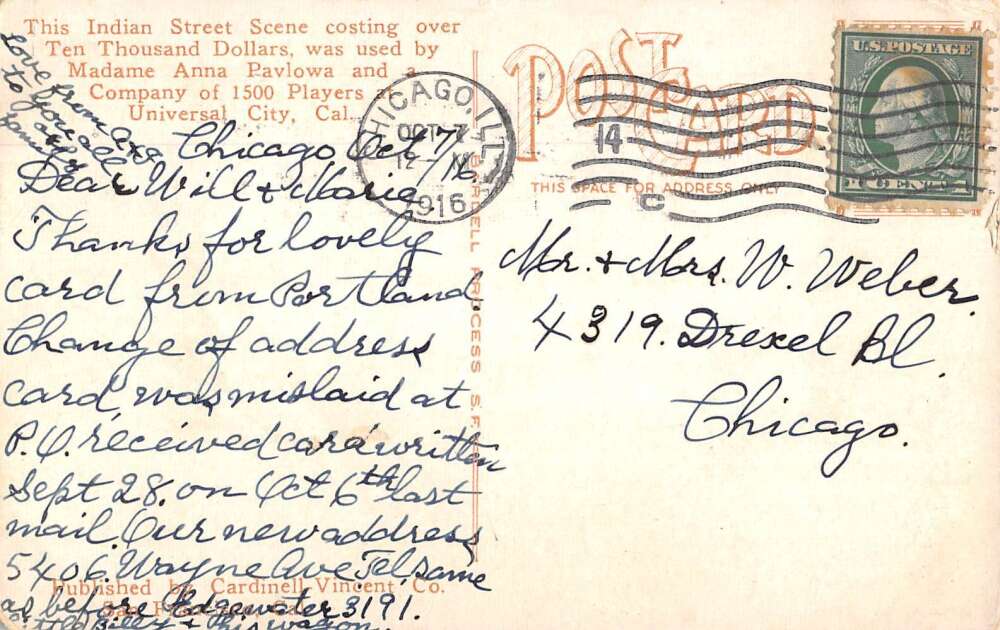 This Indian Street Scene costing over
Ten Thousand Dollars, was used by
Madame Anna Pavlowa and a
Company of 1500 Players at
Universal City, Cal.
Love from
to you all
family
Chicago Oct. 7/16.
Dear Will & Marie,
Thanks for lovely
card from Portland
Change of address
card, was mislaid at
P.O. received card written
Sept 28. on Oct 6th last
mail. Our new address
5406. Wayne Ave Tel. same
as before Edgewater 3191.
Billy & his wagon.
Published by Cardinell-Vincent Co.
San
POST CARD
THIS SPACE FOR ADDRESS ONLY
CHICAGO, ILL.
OCT 7
1916
14
C
U.S. POSTAGE
CENT
PROCESS S.F.
Mr. & Mrs. W. Weber.
4319. Drexel Bl.
Chicago.